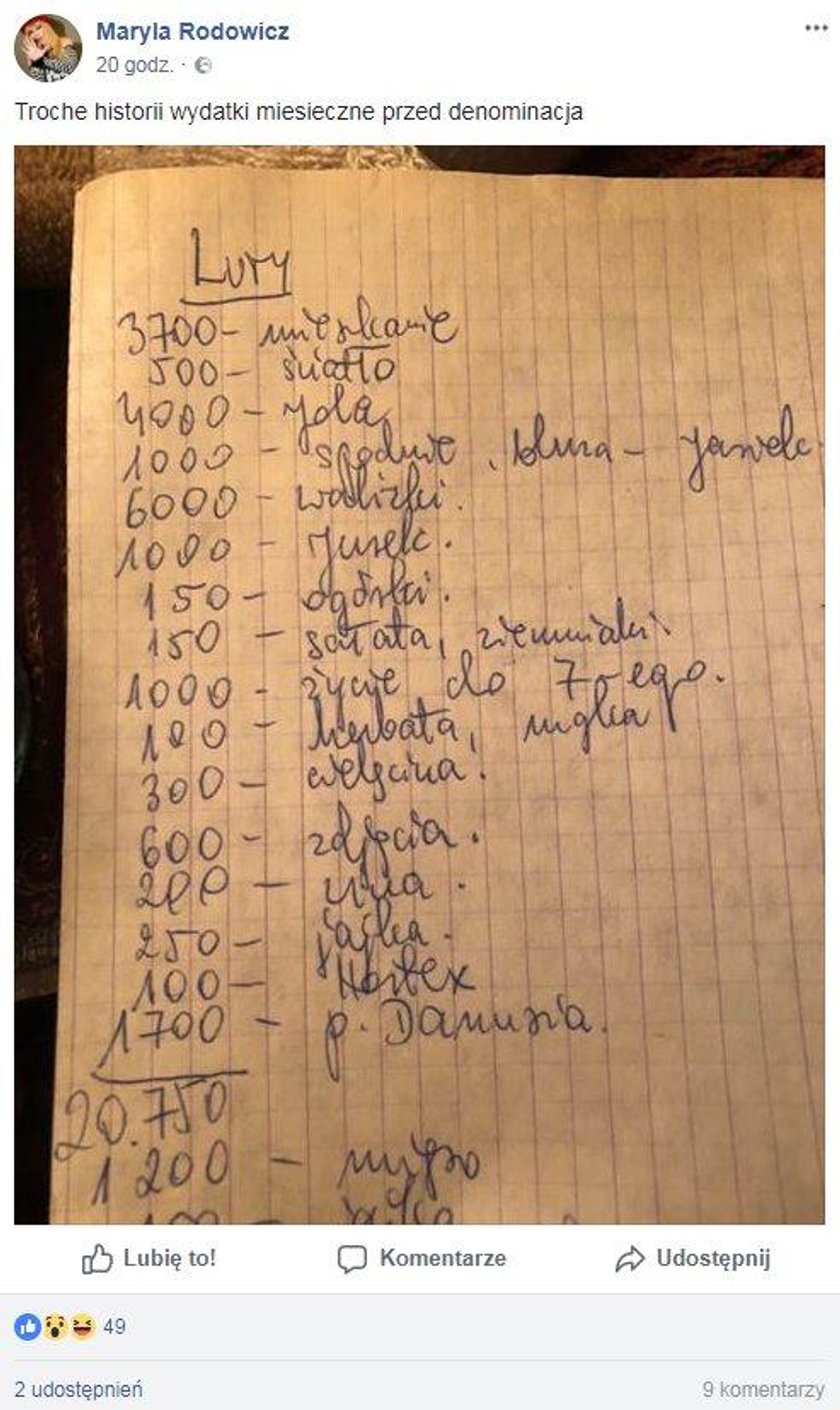 Maryla Rodowicz
20 godz.
Troche historii wydatki miesieczne przed denominacja
Luty
3700- mieszkanie
500- światło
4000- Jola
1000 - spodnie, bluza - Jasiek
6000 - walizki.
1000 - Jusek.
150 - ogórki.
150 - sałata, ziemniaki
1000 - życie do 7-ego.
100 - herbata, mąka
300 - cielęcina.
600 - zdjęcia.
200 -
250 - jajka.
100 - Hortex
1700 - p. Danusia.
20.750
1200 - mięso
Lubię to!
Komentarze
Udostępnij
49
2 udostępnień
9 komentarzy